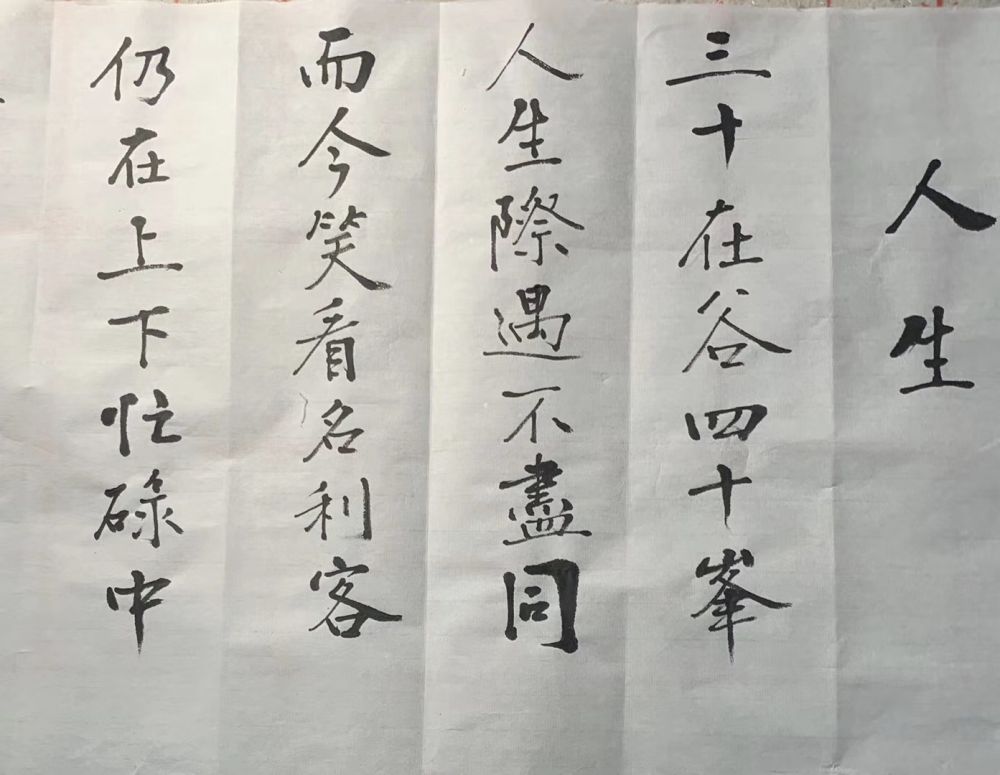 人生
三十在谷四十峯
人生際遇不盡同
而今笑看名利客
仍在上下忙碌中